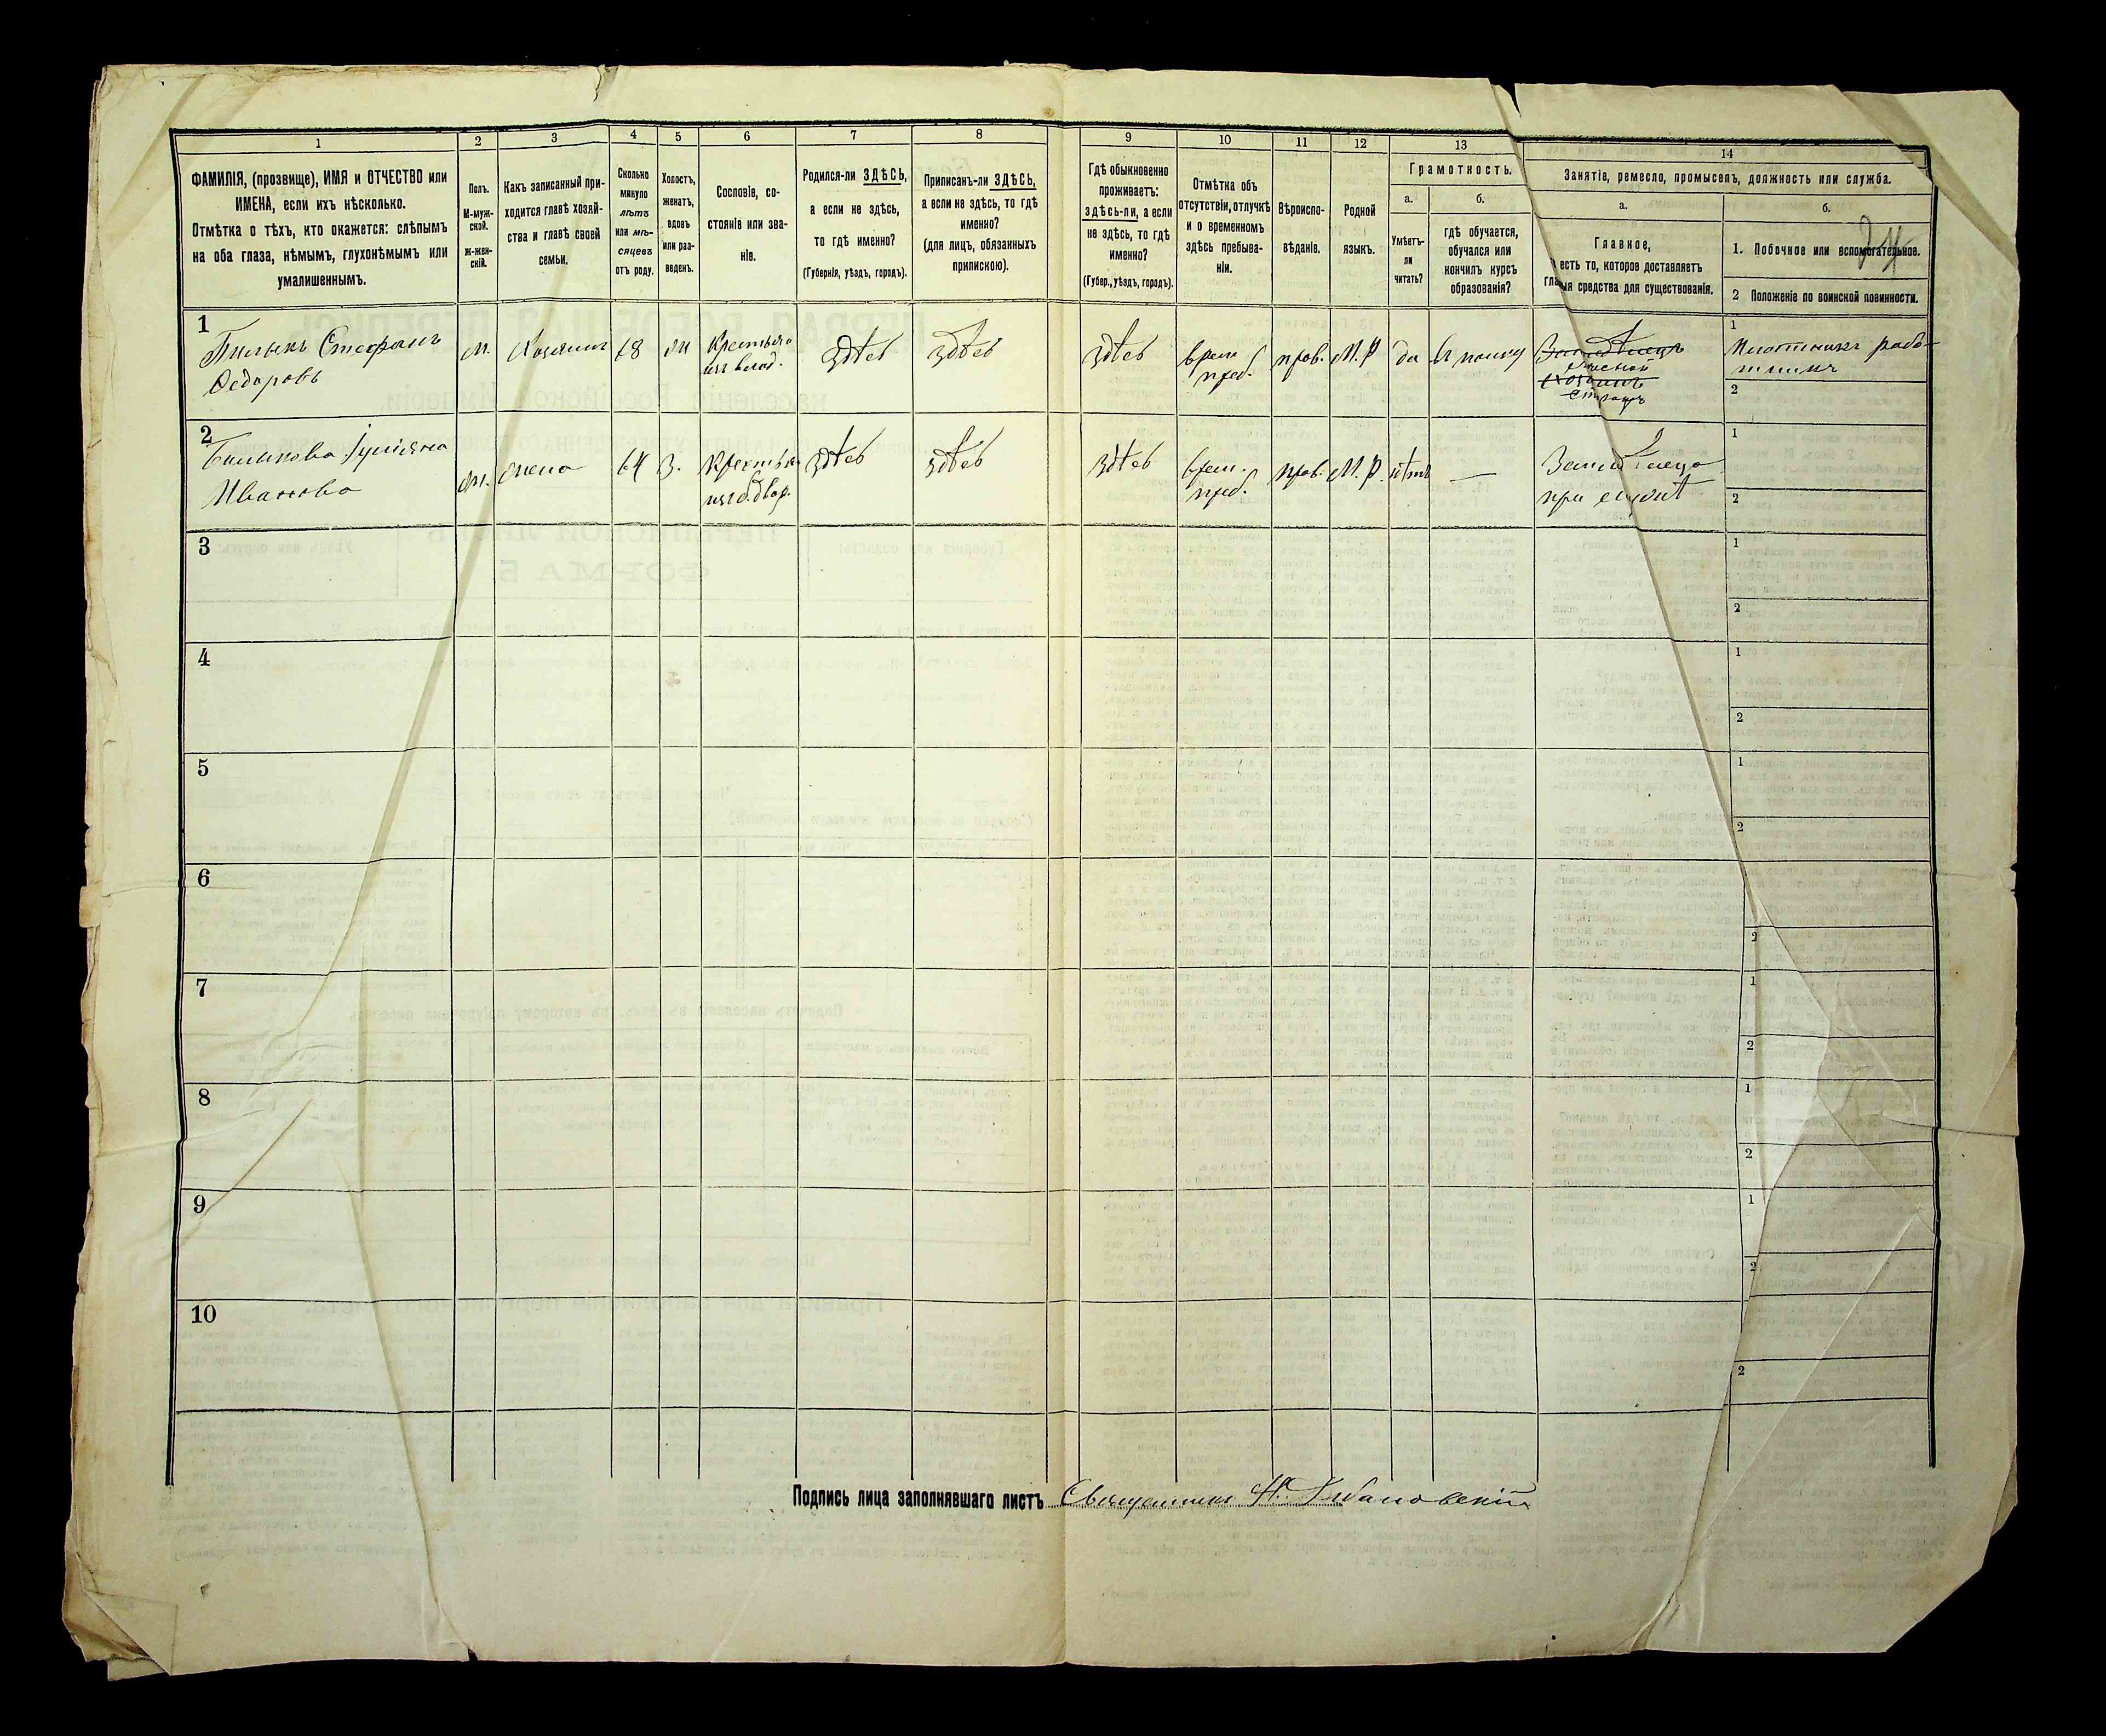 1
2
3
4
5
6
7
8
9
10
11
12
13
14
ФАМИЛІЯ, (прозвище), ИМЯ и ОТЧЕСТВО или
ИМЕНА, если ихъ нѣсколько.
Отмѣтка о тѣхъ, кто окажется: слѣпымъ
на оба глаза, нѣмымъ, глухонѣмымъ или
умалишеннымъ.
Полъ.
М-муж-
ской.
Ж-жен-
скій.
Какъ записанный при-
ходится главѣ хозяй-
ства и главѣ своей
семьи.
Сколько
минуло
лѣтъ
или мѣ-
сяцевъ
отъ роду.
Холостъ,
женатъ,
вдовъ
или раз-
веденъ.
Сословіе, со-
стояніе или зва-
ніе.
Родился-ли ЗДѢСЬ,
а если не здѣсь,
то гдѣ именно?
(Губернія, уѣздъ, городъ).
Приписанъ-ли ЗДѢСЬ,
а если не здѣсь, то гдѣ
именно?
(для лицъ, обязанныхъ
припискою).
Гдѣ обыкновенно
проживаетъ:
здѣсь-ли, а если
не здѣсь, то гдѣ
именно?
(Губер., уѣздъ, городъ).
Отмѣтка объ
отсутствіи, отлучкѣ
и о временномъ
здѣсь пребыва-
ніи.
Вѣроиспо-
вѣданіе.
Родной
языкъ.
Грамотность.
а.
Умѣетъ-
ли
читать?
б.
гдѣ обучается,
обучался или
кончилъ курсъ
образованія?
Занятіе, ремесло, промыселъ, должность или служба.
а.
Главное,
есть то, которое доставляетъ
средства для существованія.
б.
1. Побочное или вспомогательное.
2 Положеніе по воинской повинности.
1
Стефанъ
Федоровъ
м. Хозяинъ 68 жн
здѣсь здѣсь здѣсь врем. преб. прав. М.Р да
1
2
2
Иванова
жена 64 З.
здѣсь здѣсь здѣсь врем. преб. прав. М.Р. нѣтъ —
1
2
3
1
2
4
1
2
5
1
2
6
2
7
1
2
8
1
2
9
1
2
10
2
Подпись лица заполнявшаго листъ Священникъ Н.